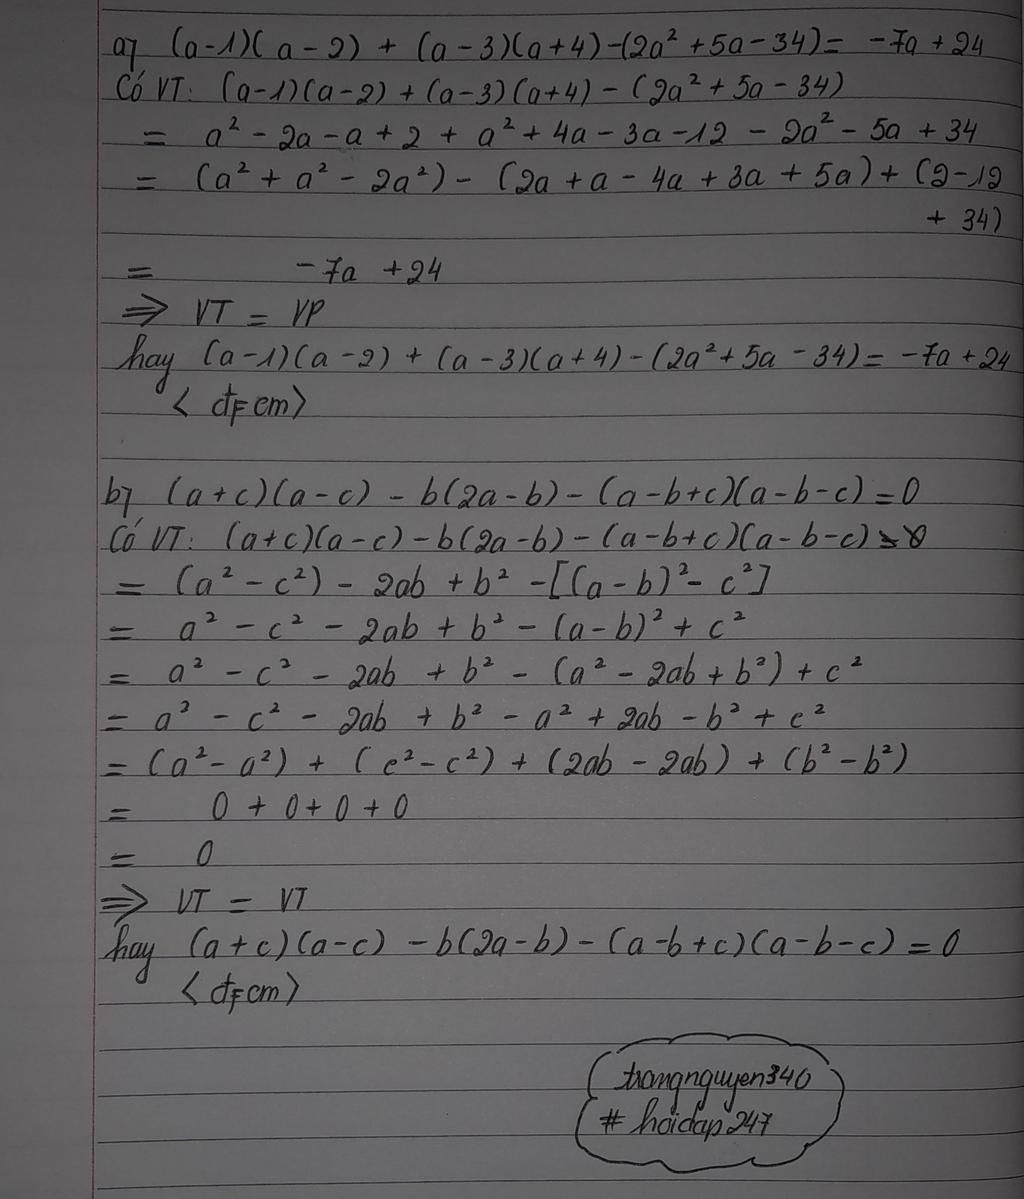 a) (a-1)(a-2) + (a-3)(a+4)-(2a² + 5a-34) = -7a+24
Có VT: (a-1)(a-2) + (a-3)(a+4) - (2a² + 5a - 34)
= a² - 2a - a + 2 + a² + 4a - 3a - 12 - 2a² - 5a + 34
= (a² + a² - 2a²) - (2a + a - 4a + 3a + 5a) + (2-12
+ 34)
= -7a +24
⇒ VT = VP
hay (a-1)(a-2) + (a-3)(a+4)-(2a²+5a-34) = -7a+24
<đpcm>
b) (a+c)(a-c) - b(2a-b) - (a-b+c)(a-b-c) = 0
Có VT: (a+c)(a-c) - b(2a-b) - (a-b+c)(a-b-c)
= (a² - c²) - 2ab + b² -[(a-b)²- c²]
= a² - c² - 2ab + b² - (a-b)² + c²
= a² - c² - 2ab + b² - (a² - 2ab + b²) + c²
= a² - c² - 2ab + b² - a² + 2ab - b² + c²
= (a² - a²) + (c²-c²) + (2ab - 2ab) + (b² - b²)
= 0 + 0 + 0 + 0
= 0
⇒ VT = VT
hay (a+c)(a-c) - b(2a-b) - (a-b+c)(a-b-c) = 0
<đpcm>
trangnguyen340
# hoidap247